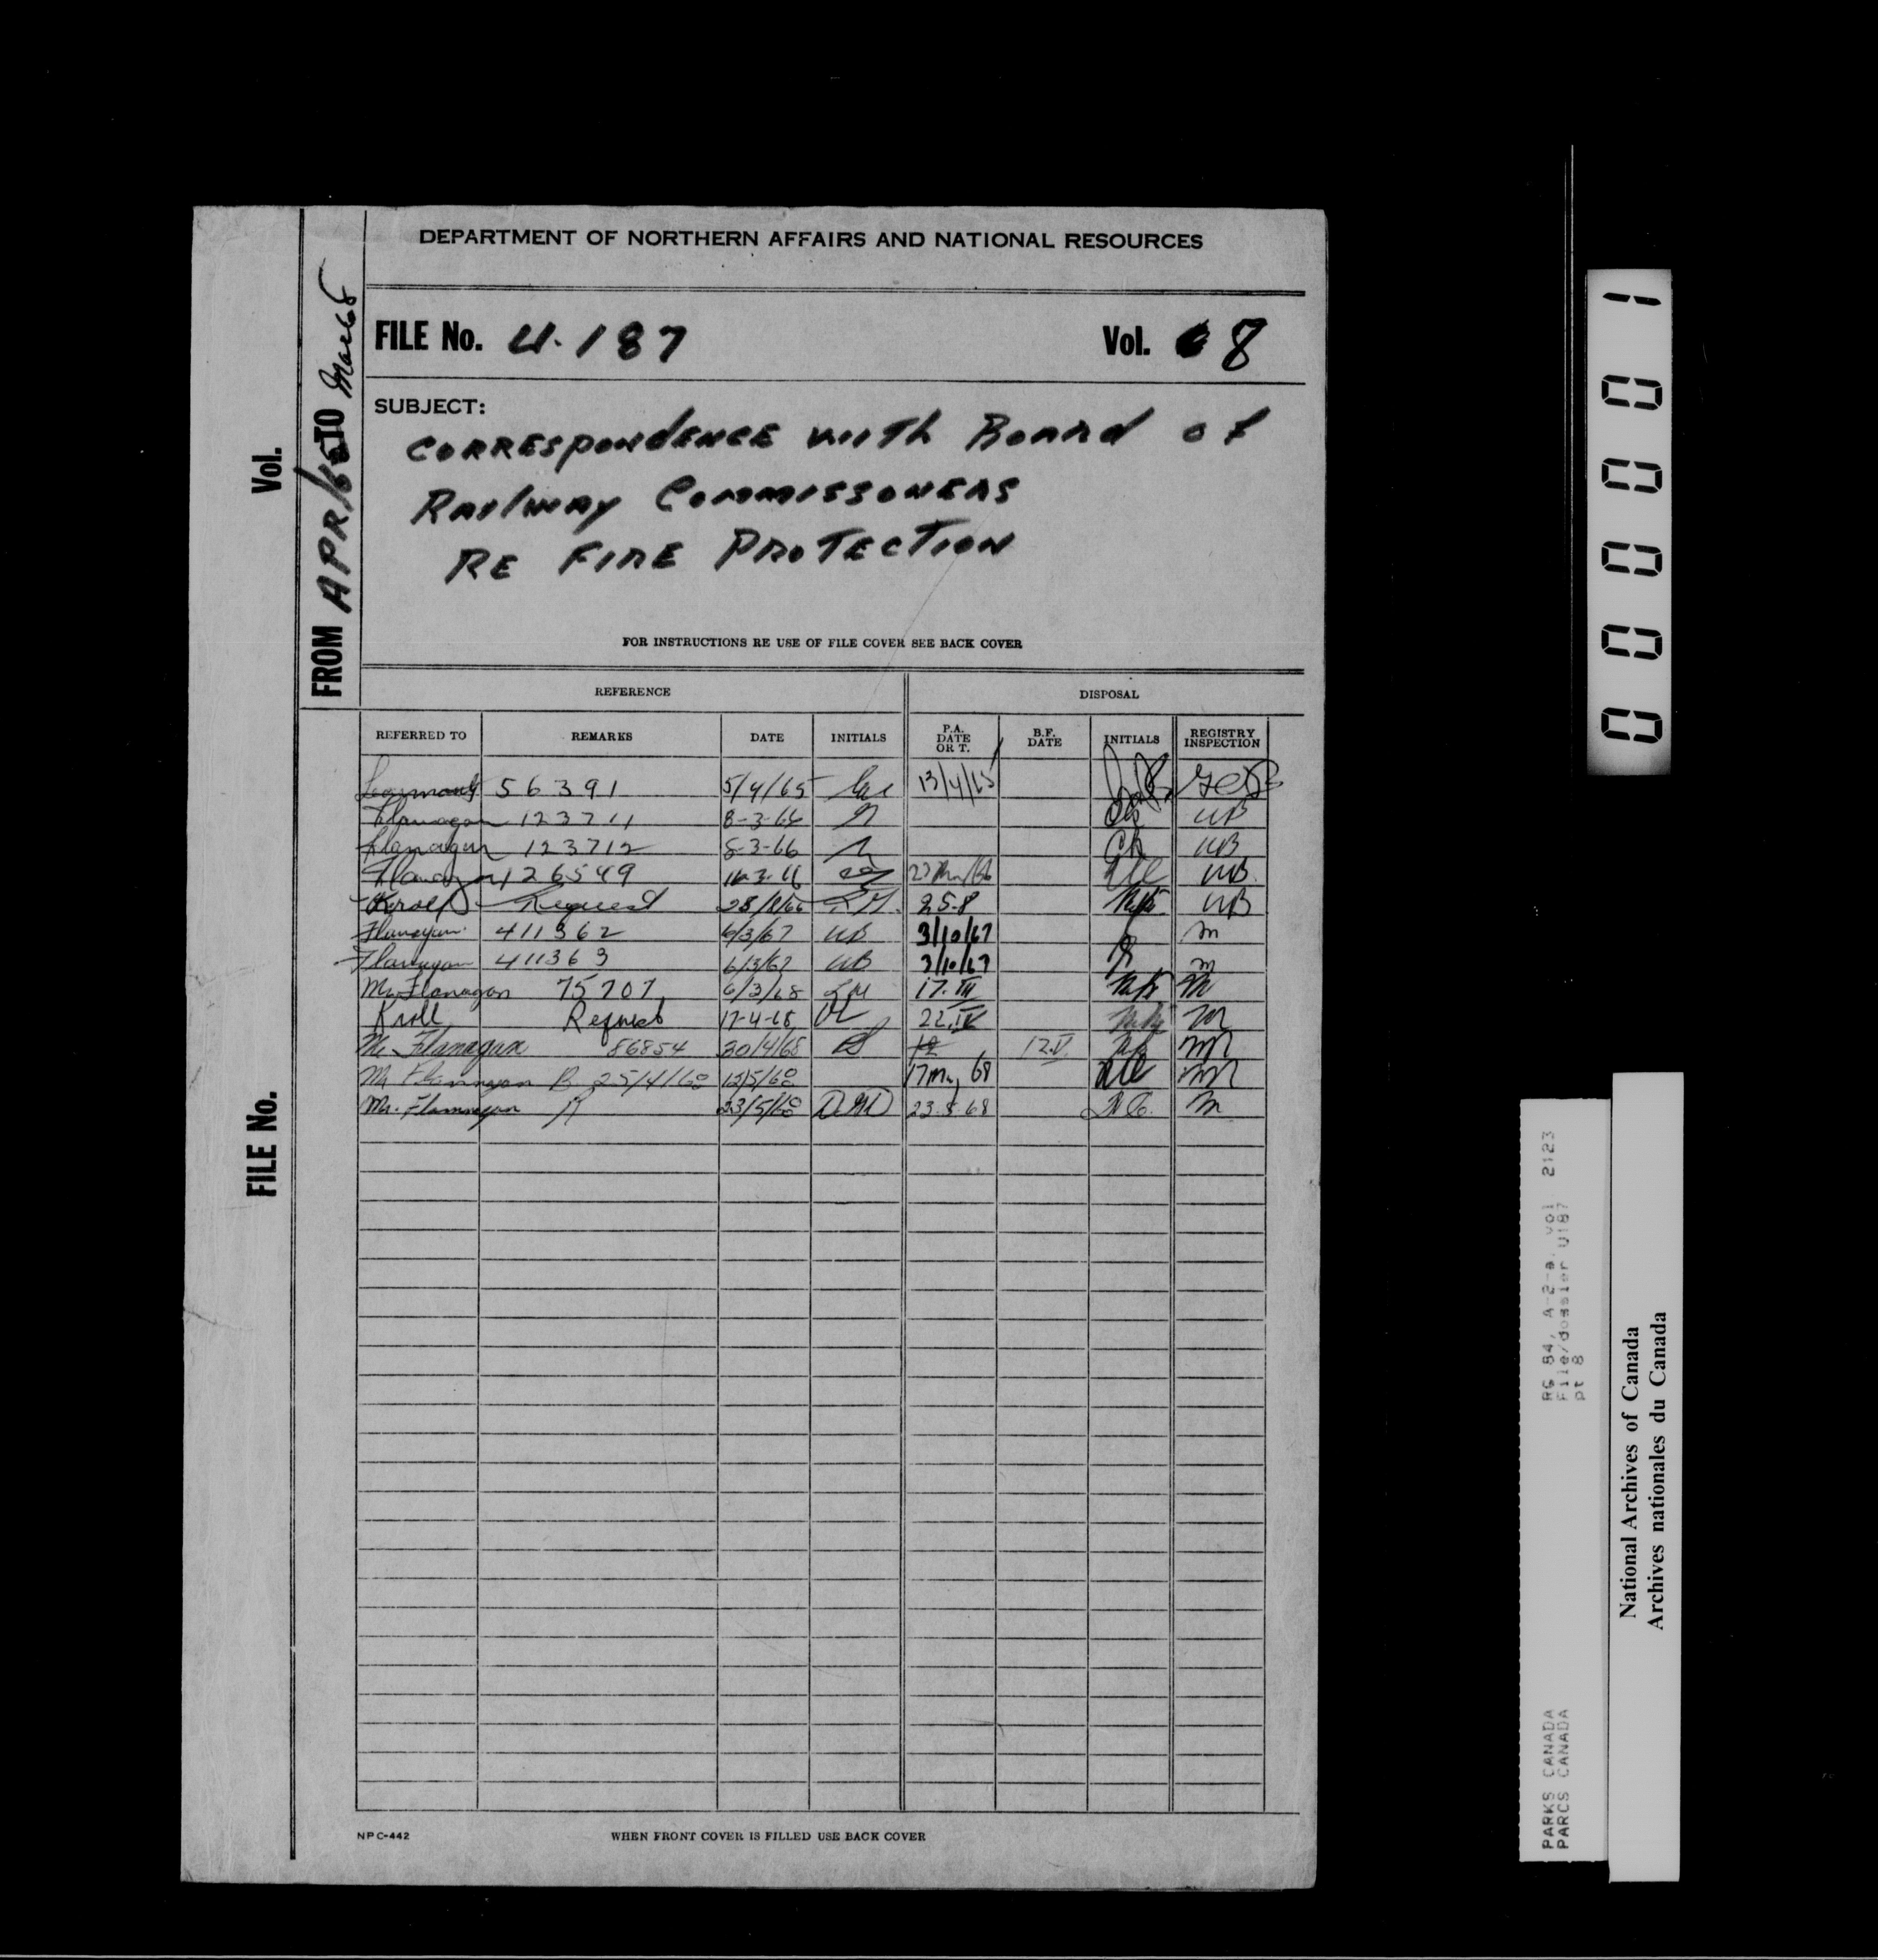 DEPARTMENT OF NORTHERN AFFAIRS AND NATIONAL RESOURCES
FILE No. U.187 Vol. 8
SUBJECT:
CORRESPONDENCE WITH BOARD OF
RAILWAY COMMISSONERS
RE FIRE PROTECTION
FOR INSTRUCTIONS RE USE OF FILE COVER SEE BACK COVER
FROM APR/65 TO Mar 68
Vol.
FILE No.
REFERENCE DISPOSAL
REFERRED TO REMARKS DATE INITIALS P.A. DATE OR T. B.F. DATE INITIALS REGISTRY INSPECTION
56391 5/4/65 13/4/65
Flanagan 123711 8-3-66 WB
Flanagan 123712 8-3-66 WB
Flanagan 126549 16-3-66 WB
Kroll Request 25.8 WB
Flanagan 411362 6/3/67 WB 3/10/67 m
Flanagan 411363 6/3/67 WB 3/10/67 m
Mr Flanagan 75707 6/3/68 17.III m
Kroll Request 17-4-68 22.IV m
Mr. Flanagan 86854 30/4/68 12 12.V m
Mr Flannagan B 25/4/68 13/5/68 17 May 68 m
Mr. Flannagan 23/5/68 23.5.68 m
NPC-442 WHEN FRONT COVER IS FILLED USE BACK COVER
000001
RG 84, A-2-a, vol 2123
File/dossier U187
pt 8
PARKS CANADA
PARCS CANADA
National Archives of Canada
Archives nationales du Canada